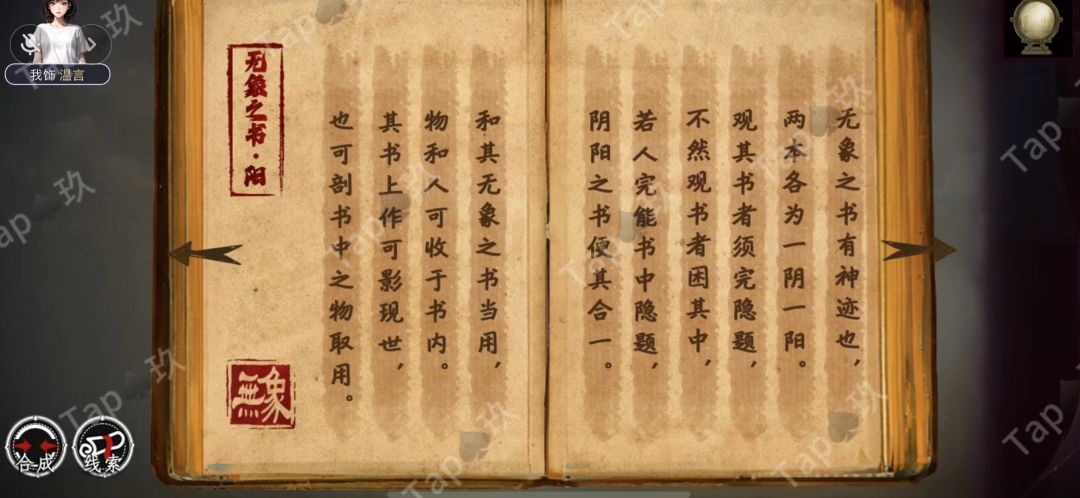 无象之书有神迹也，
两本各为一阴一阳。
观其书者须完隐题，
不然观书者困其中，
若人完能书中隐题，
阴阳之书便其合一。
和其无象之书当用，
物和人可收于书内。
其书上作可影现世，
也可剖书中之物取用。
无象之书·阳
無象
我饰 温言
合成
线索
Tap 玖
Tap 玖
Tap 玖
Tap 玖
Tap 玖
Tap 玖
Tap 玖
Tap 玖
Tap 玖
Tap
Tap